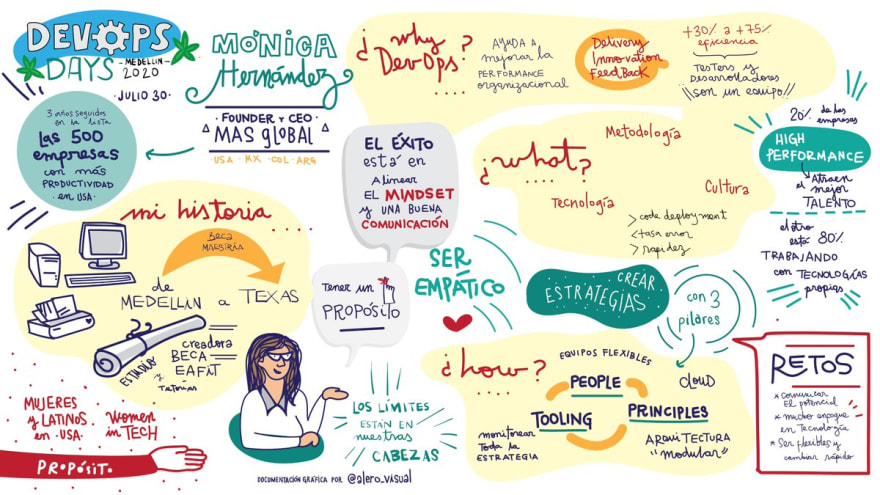 DEVOPS
DAYS
-MEDELLIN-
2020
JULIO 30
MÓNICA
Hernández
FOUNDER Y CEO
MAS GLOBAL
· USA · MX · COL · ARG
3 años seguidos
en la lista
Las 500
empresas
con más
PRODUCTIVIDAD
· en USA ·
mi historia
BECA
MAESTRÍA
de
MEDELLIN a TEXAS
ESTUDIO
y
Tutorías
creadora
BECA
EAFIT
MUJERES
y LATINOS
en · USA ·
Women
in TECH
PROPÓSITO
EL ÉXITO
está en
Alinear
EL MINDSET
y UNA BUENA
COMUNICACIÓN
Tener un
PROPÓSITO
SER
EMPÁTICO
LOS LÍMITES
ESTÁN EN
nuestras
CABEZAS
DOCUMENTACIÓN GRÁFICA POR @alero_visual
¿why
DevOps?
AYUDA A
mejorar la
PERFORMANCE
organizacional
Delivery
Innovation
FeedBack
+30% a +75%
eficiencia
TESTERS y
Desarrolladores
son un equipo
¿what?
Metodología
Tecnología
Cultura
> code deployment
< tasa error
> rapidez
20% de las
empresas
HIGH
PERFORMANCE
Atraen
el mejor
TALENTO
el otro
está 80%
TRABAJANDO
con TECNOLOGÍAS
propias
CREAR
ESTRATEGIAS
con 3
pilares
¿how?
EQUIPOS FLEXIBLES
PEOPLE
TOOLING
PRINCIPLES
CLOUD
monitorear
Toda la
ESTRATEGIA
ARQUITECTURA
"modular"
RETOS
* comunicar
EL potencial
* mucho enfoque
en Tecnología
* Ser flexibles y
cambiar rápido